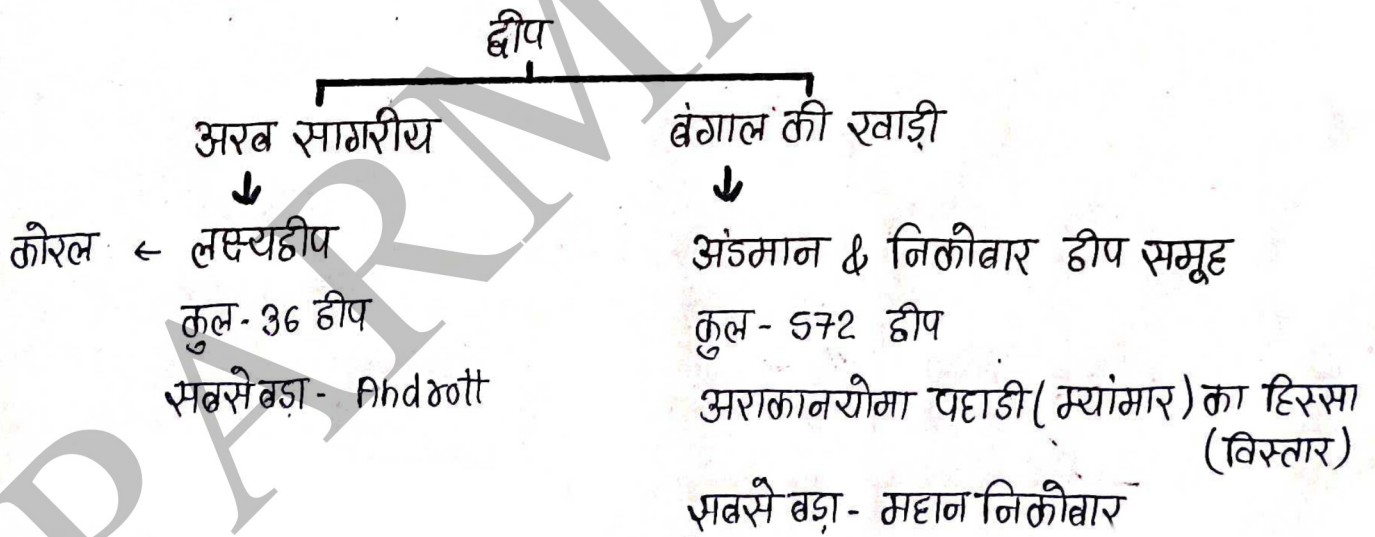 द्वीप
अरब सागरीय
बंगाल की खाड़ी
कोरल ← लक्ष्यद्वीप
कुल - 36 द्वीप
सबसे बड़ा - Andrott
अंडमान & निकोबार द्वीप समूह
कुल - 572 द्वीप
अराकानयोमा पहाडी (म्यांमार) का हिस्सा
(विस्तार)
सबसे बड़ा - महान निकोबार
PARMA